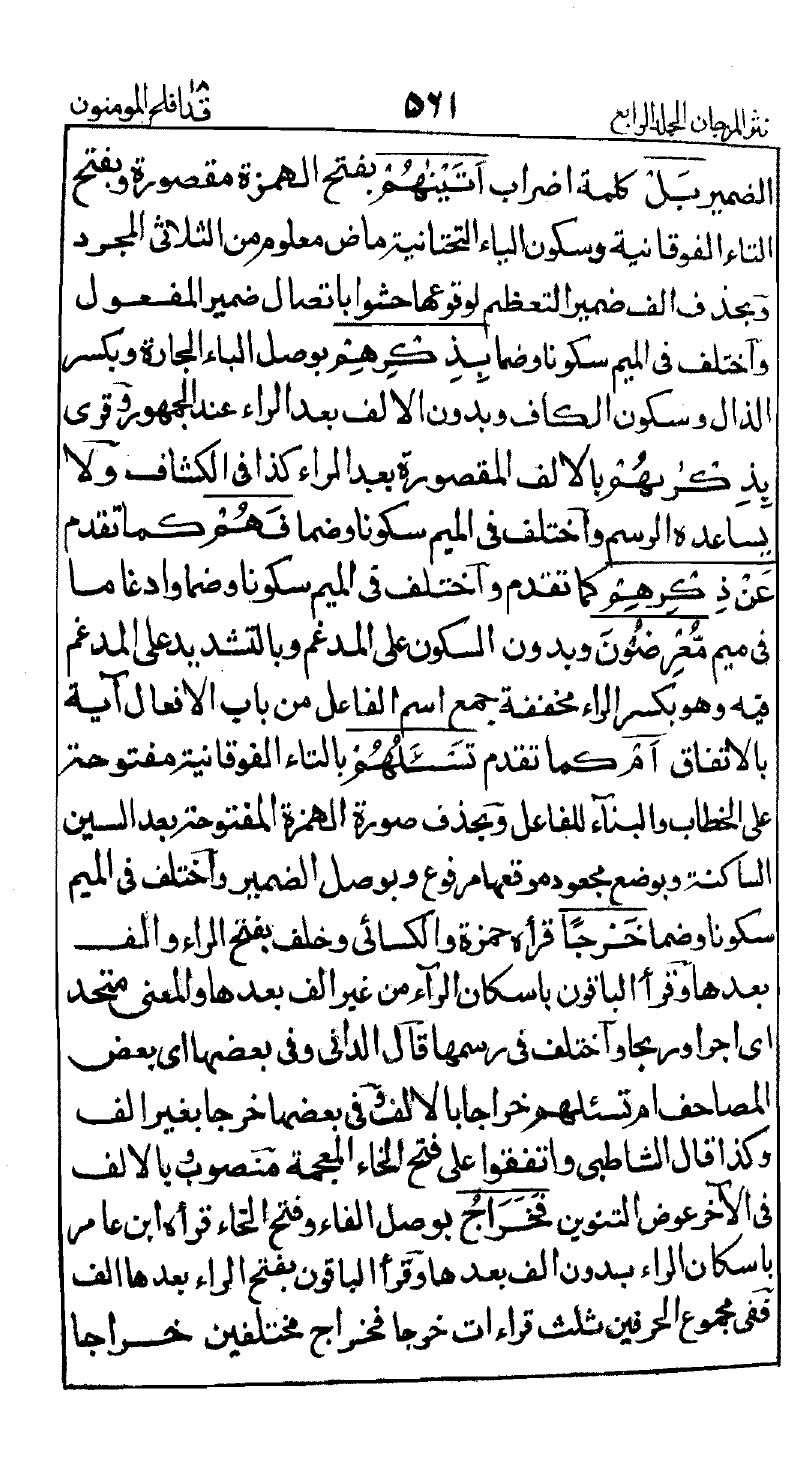 نثر المرجان المجلد الرابع ٥٦١ قد افلح المومنون ١٨
الضمير بَلْ كلمة اضراب اَتَيْنٰهُمْ بفتح الهمزة مقصورة وبفتح
التاء الفوقانية وسكون الياء التحتانية ماض معلوم من الثلاثى المجرد
وبحذف الف ضمير التعظم لوقوعها حشوا باتصال ضمير المفعول
وآختلف فى الميم سكونا وضما بِذِكْرِهِمْ بوصل الباء الجارة وبكسر
الذال وسكون الكاف وبدون الالف بعد الراء عند الجمهور وقرى
بِذِكْرٰىهُمْ بالالف المقصورة بعد الراء كذا فى الكشاف ولا
يساعده الرسم وآختلف فى الميم سكونا وضما فَهُمْ كما تقدم
عَنْ ذِكْرِهِمْ كما تقدم وآختلف فى الميم سكونا وضما وادغاما
فى ميم مُّعْرِضُوْنَ وبدون السكون على المدغم وبالتشديد على المدغم
فيه وهو بكسر الراء مخففة جمع اسم الفاعل من باب الافعال آية
بالاتفاق اَمْ كما تقدم تَسْـَٔلُهُمْ بالتاء الفوقانية مفتوحة
على الخطاب والبنآء للفاعل وبحذف صورة الهمزة المفتوحة بعد السين
الساكنة وبوضع مجعودة موقعها مرفوع وبوصل الضمير وآختلف فى الميم
سكونا وضما خَرْجًا قرأه حمزة والكسائى وخلف بفتح الراء والف
بعدها وقرأ الباقون باسكان الرآء من غير الف بعدها والمعنى متحد
اى اجرا وربحا وآختلف فى رسمها قال الدانى وفى بعضها اى بعض
المصاحف ام تسئلهم خراجا بالالف وفى بعضها خرجا بغير الف
وكذا قال الشاطبى واتفقوا على فتح الخاء المعجمة منصوب وبالالف
فى الآخر عوض التنوين فَخَرَاجُ بوصل الفاء وفتح الخاء قرأه ابن عامر
باسكان الراء بدون الف بعدها وقرأ الباقون بفتح الراء بعدها الف
ففى مجموع الحرفين ثلث قراءات خرجا فخراج مختلفين خراجا